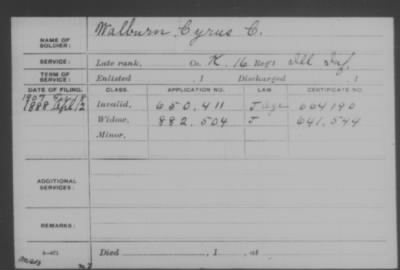 NAME OF SOLDIER: Walburn, Cyrus C.
SERVICE: Late rank, Co. K, 16 Reg't Ill Inf.
TERM OF SERVICE: Enlisted , 1 Discharged , 1
DATE OF FILING. CLASS. APPLICATION NO. LAW CERTIFICATE NO.
1907
1888 Apl. 12 Invalid, 650.411
Widow, 882.504 J 641.544
Minor,
ADDITIONAL SERVICES:
REMARKS:
Died , 1 , at